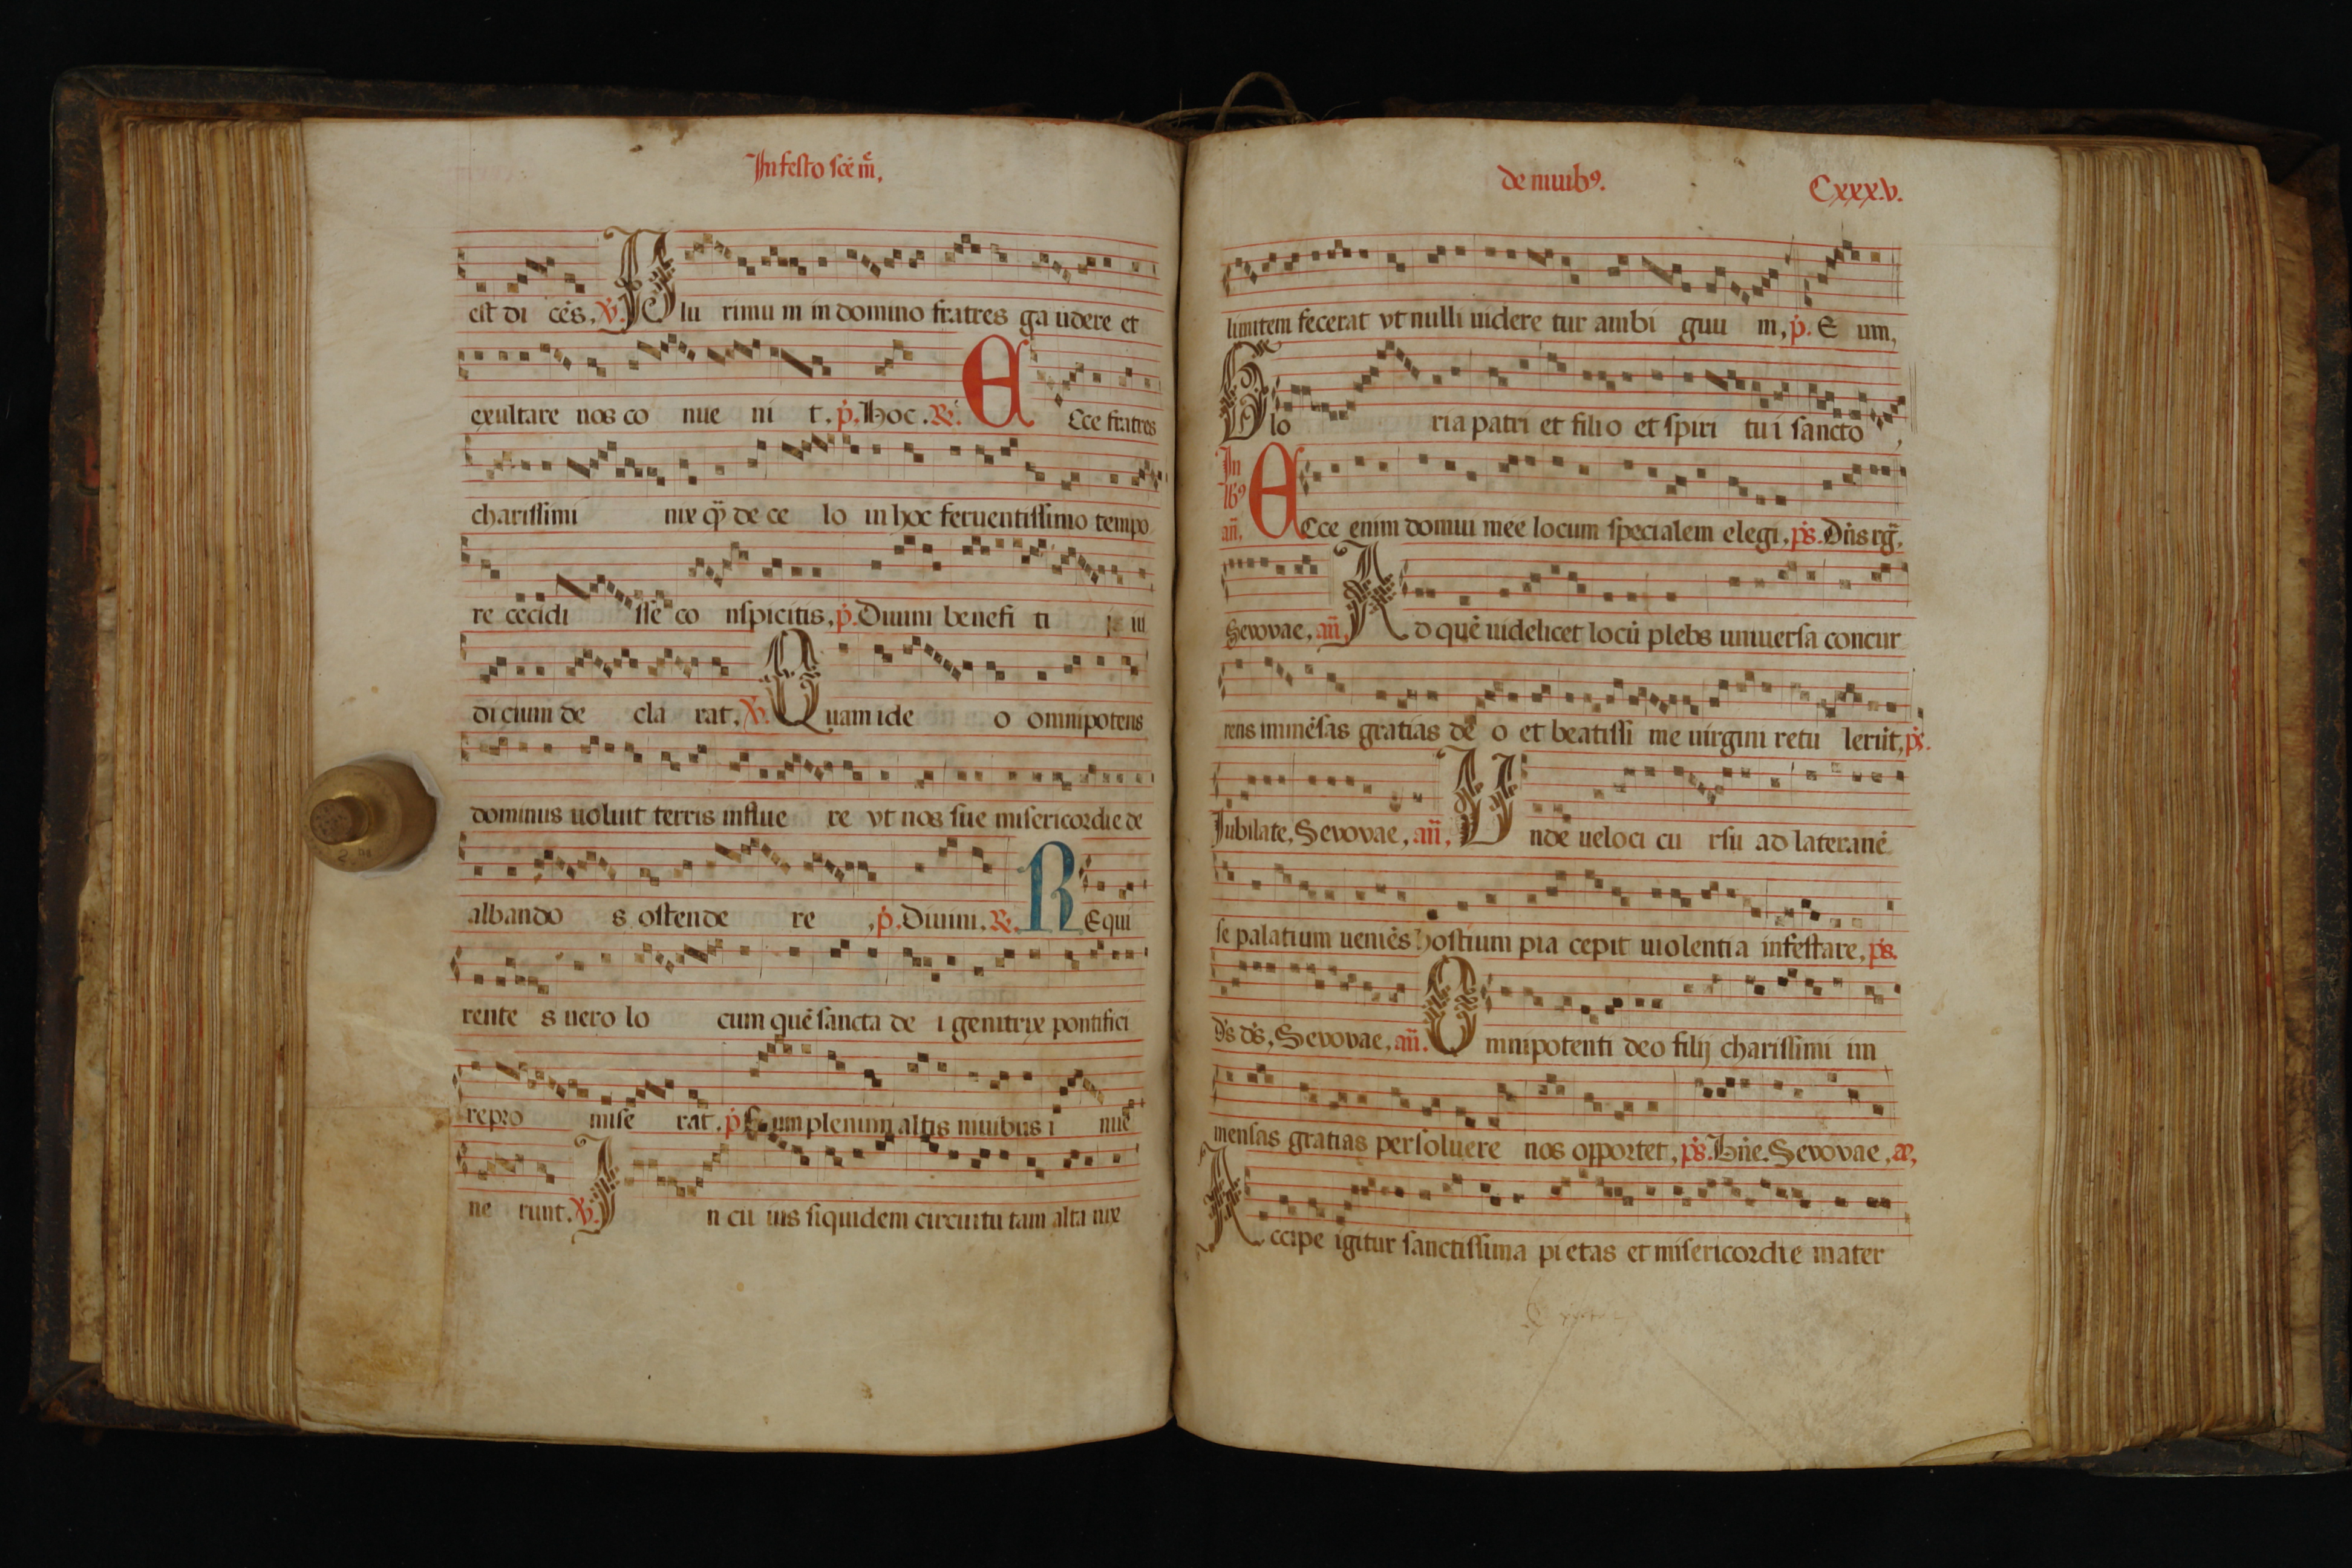 In festo scē m̄e.
est di cēs. ℣. Plu rimu m in domino fratres ga udere et
exultare nos co nue ni t. p̄. Hoc. ℟. Ecce fratres
charissimi nix q̄ de ce lo in hoc feruentissimo tempo
re cecidi sse co nspicitis. p̄. Diuini benefi ti
dicium de cla rat. ℣. Quam ide o omnipotens
dominus uoluit terris influe re vt nos sue misericordie de
albando s ostende re p̄. Diuini. ℟. REqui
rente s uero lo cum quē sancta de i genitrix pontifici
repro mise rat. p̄. Eum plenum altis niuibus i nue
ne runt. ℣. In cu ius siquidem circuitu tam alta nix
de niuibꝰ. Cxxx.v.
limitem fecerat vt nulli uidere tur ambi guu m. p̄. E um.
Glo ria patri et filio et spiri tu i sancto
In
añ. Ecce enim domui mee locum specialem elegi. p̄s. Dn̄s rg̃.
Sevovae. añ. Ad quē uidelicet locū plebs uniuersa concur
rens immēsas gratias de o et beatissi me uirgini retu lerūt. p̄s.
Jubilate. Sevovae. añ. Unde ueloci cu rsu ad lateranē
se palatium ueniēs hostium pia cepit uiolentia infestare. p̄s.
d̄s d̄s. Sevovae. añ. Omnipotenti deo filij charissimi im
mensas gratias persoluere nos opportet. p̄s. Bn̄e. Sevovae. ae.
Accipe igitur sanctissima pietas et misericordie mater